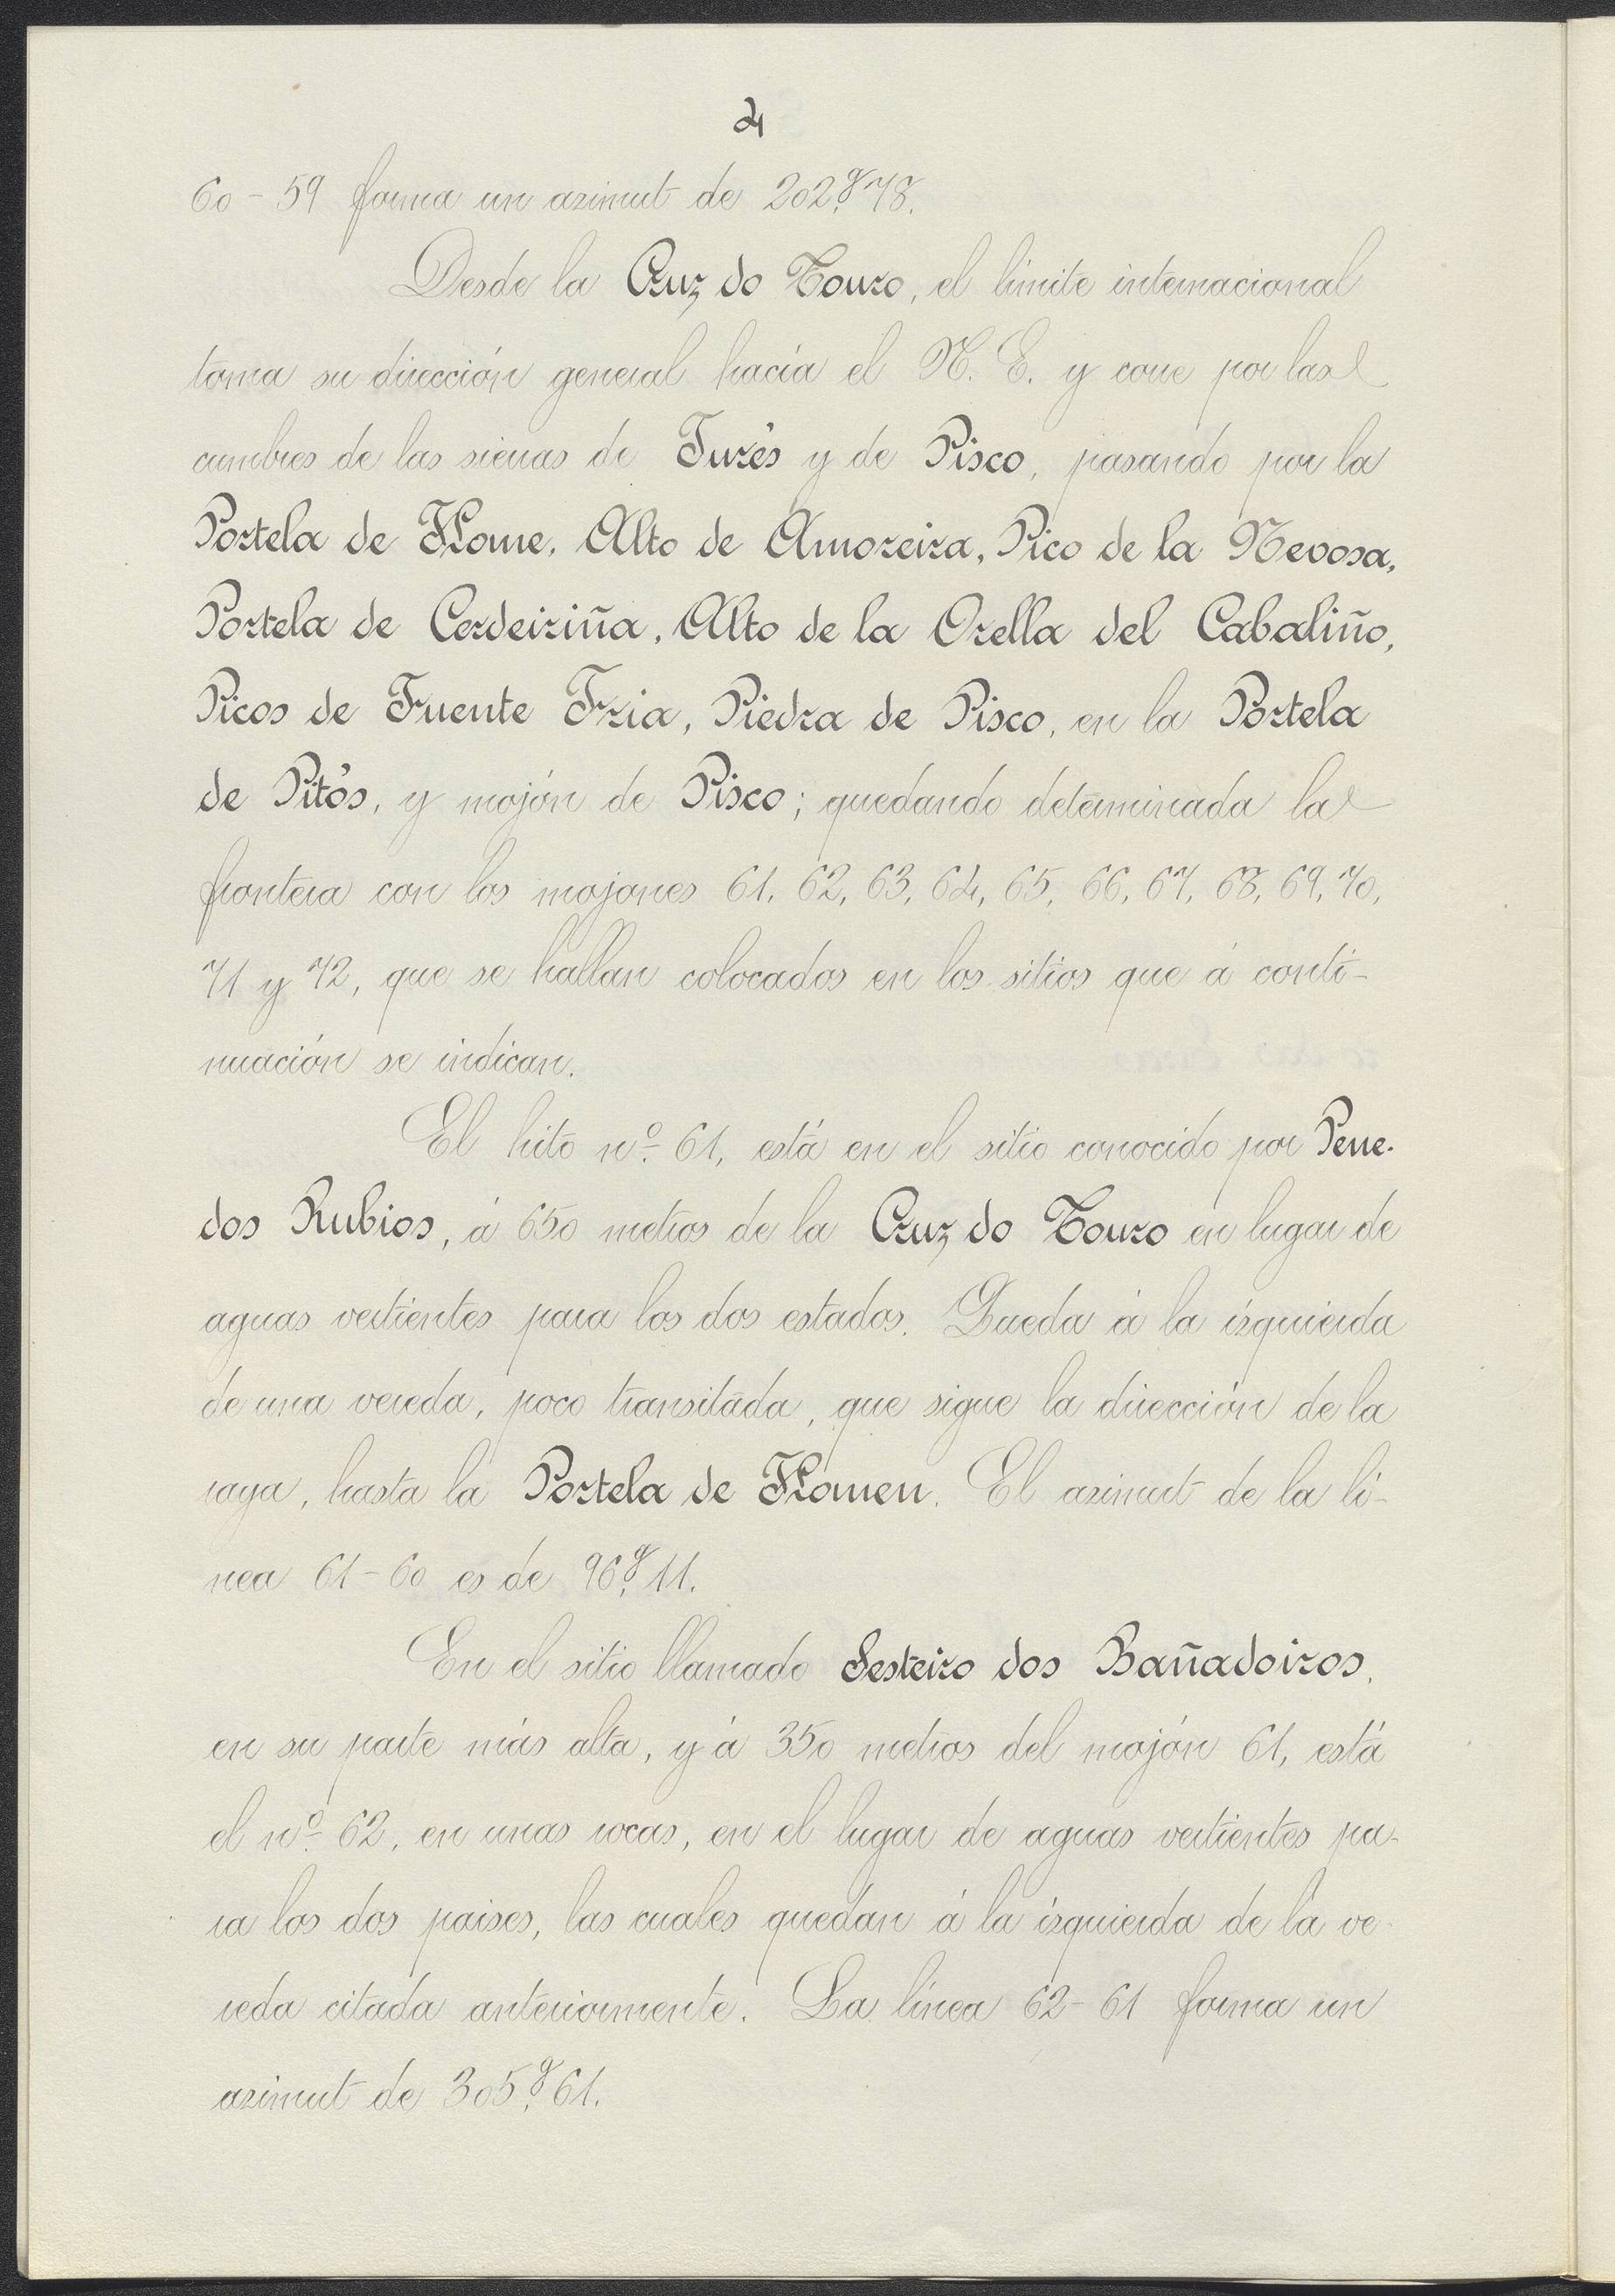 4
60-59 forma un azimut de 202,g78.
Desde la Cruz do Touro, el límite internacional
toma su dirección general hacia el N. E. y corre por las
cumbres de las sierras de Jurés y de Pisco, pasando por la
Portela de Home, Alto de Amoreira, Pico de la Nevosa,
Portela de Cerdeiriña, Alto de la Orella del Cabaliño,
Picos de Fuente Fria, Piedra de Pisco, en la Portela
de Pitós, y mojón de Pisco; quedando determinada la
frontera con los mojones 61, 62, 63, 64, 65, 66, 67, 68, 69, 70,
71 y 72, que se hallan colocados en los sitios que á conti-
nuación se indican.
El hito nº 61, está en el sitio conocido por Pene-
dos Rubios, á 650 metros de la Cruz do Touro en lugar de
aguas vertientes para los dos estados. Queda á la izquierda
de una vereda, poco transitada, que sigue la dirección de la
raya, hasta la Portela de Homen. El azimut de la lí-
nea 61-60 es de 96,g11.
En el sitio llamado Sesteiro dos Bañadoiros,
en su parte más alta, y á 350 metros del mojón 61, está
el nº 62, en unas rocas, en el lugar de aguas vertientes pa-
ra los dos paises, las cuales quedan á la izquierda de la ve-
reda citada anteriormente. La línea 62-61 forma un
azimut de 305,g61.